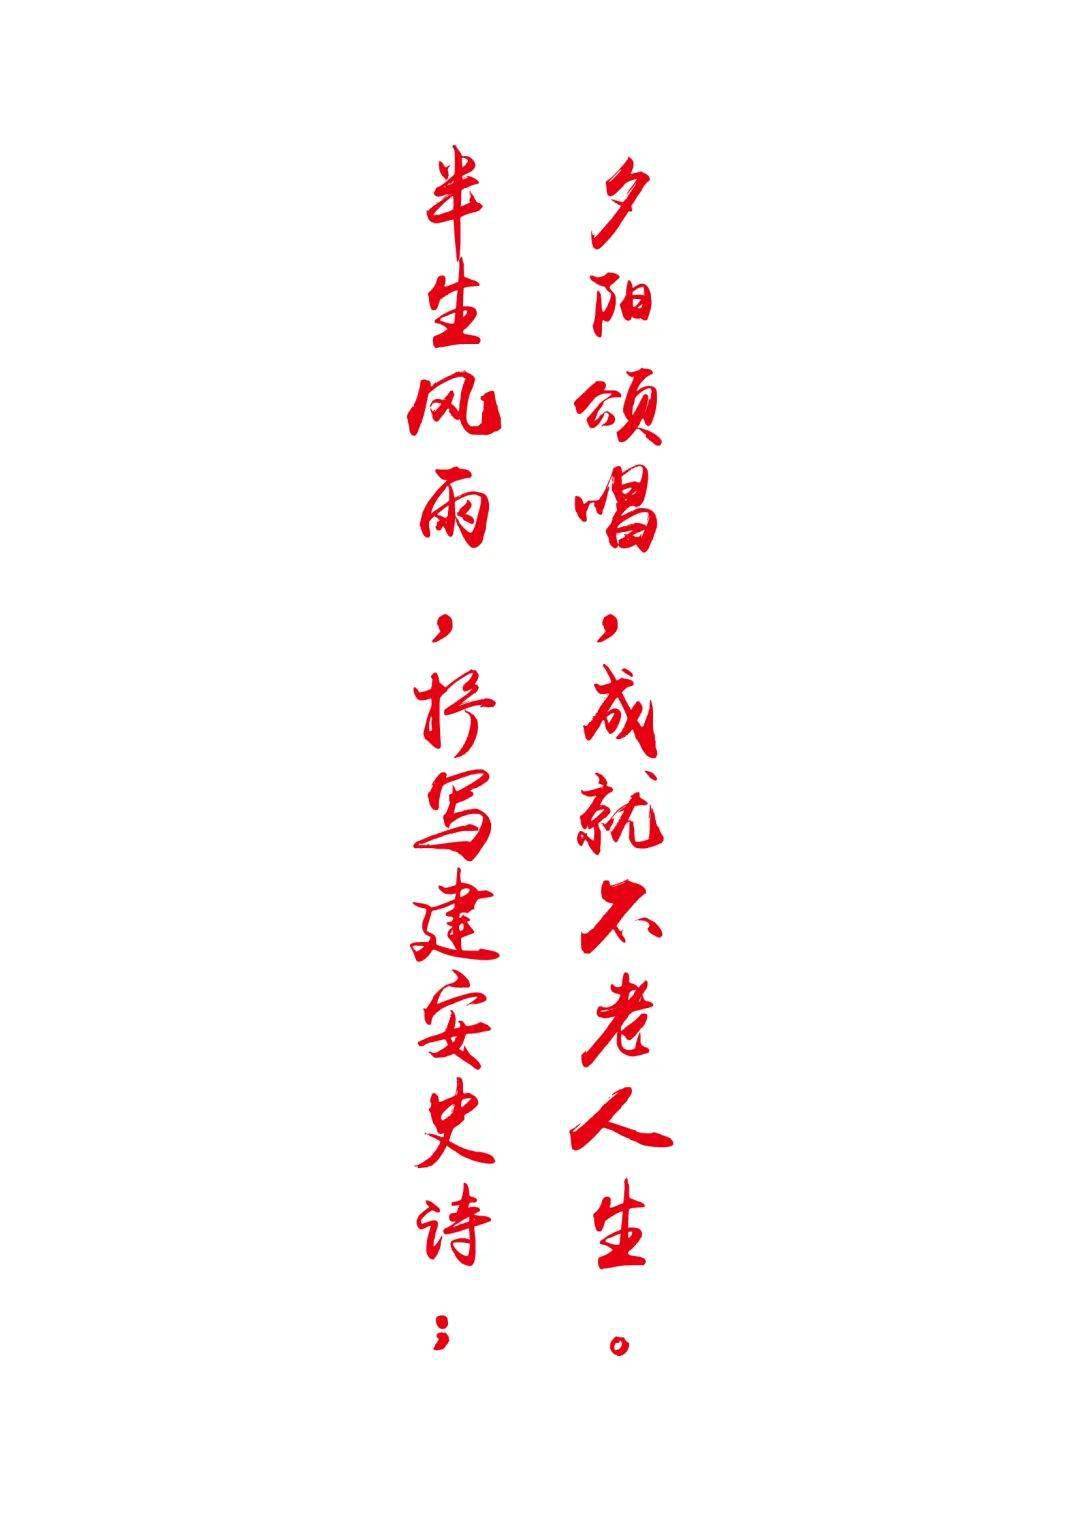 半生风雨，抒写建安史诗；
夕阳颂唱，成就不老人生。